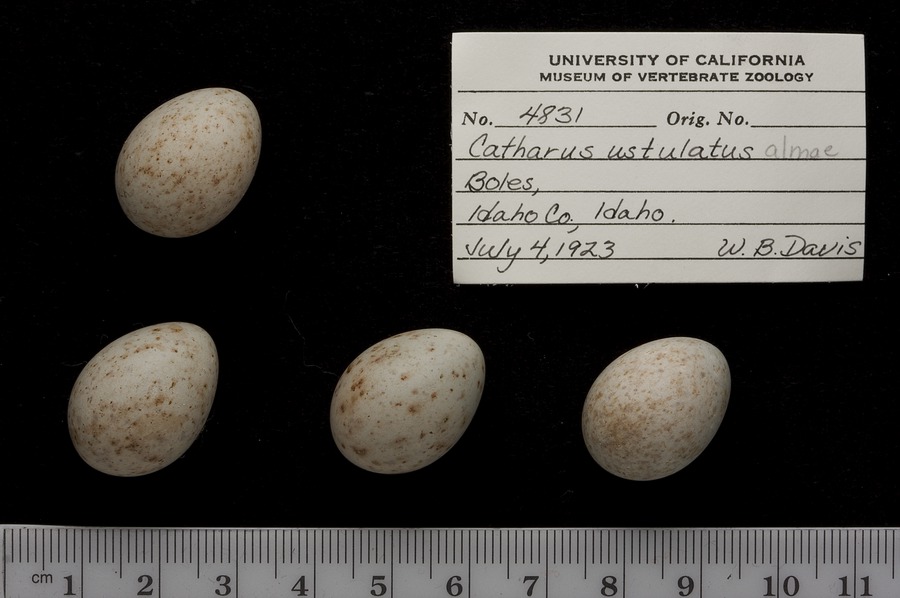 UNIVERSITY OF CALIFORNIA
MUSEUM OF VERTEBRATE ZOOLOGY
No. 4831 Orig. No.
Catharus ustulatus almae
Boles,
Idaho Co., Idaho.
July 4, 1923 W. B. Davis
cm 1 2 3 4 5 6 7 8 9 10 11